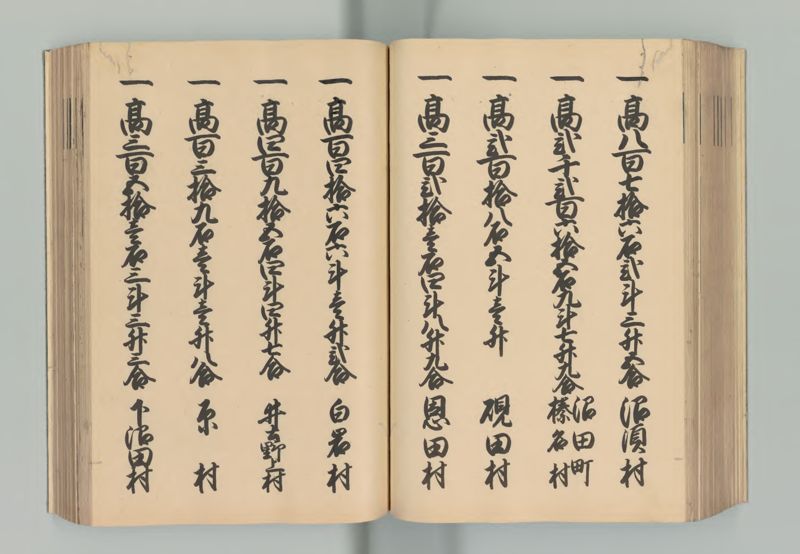 一高八百七拾六石弐斗三升五合 沼須村
一高弐千弐百六拾六石九斗七升九合 沼田町 榛名村
一高弐百拾八石五斗壱升 硯田村
一高三百弐拾壱石四斗八升九合 恩田村
一高百四拾六石六斗壱升弐合 白岩村
一高四百九拾五石四斗四升七合 井土野上村
一高百三拾九石壱斗壱升八合 原村
一高三百五拾壱石三斗三升三合 下沼田村